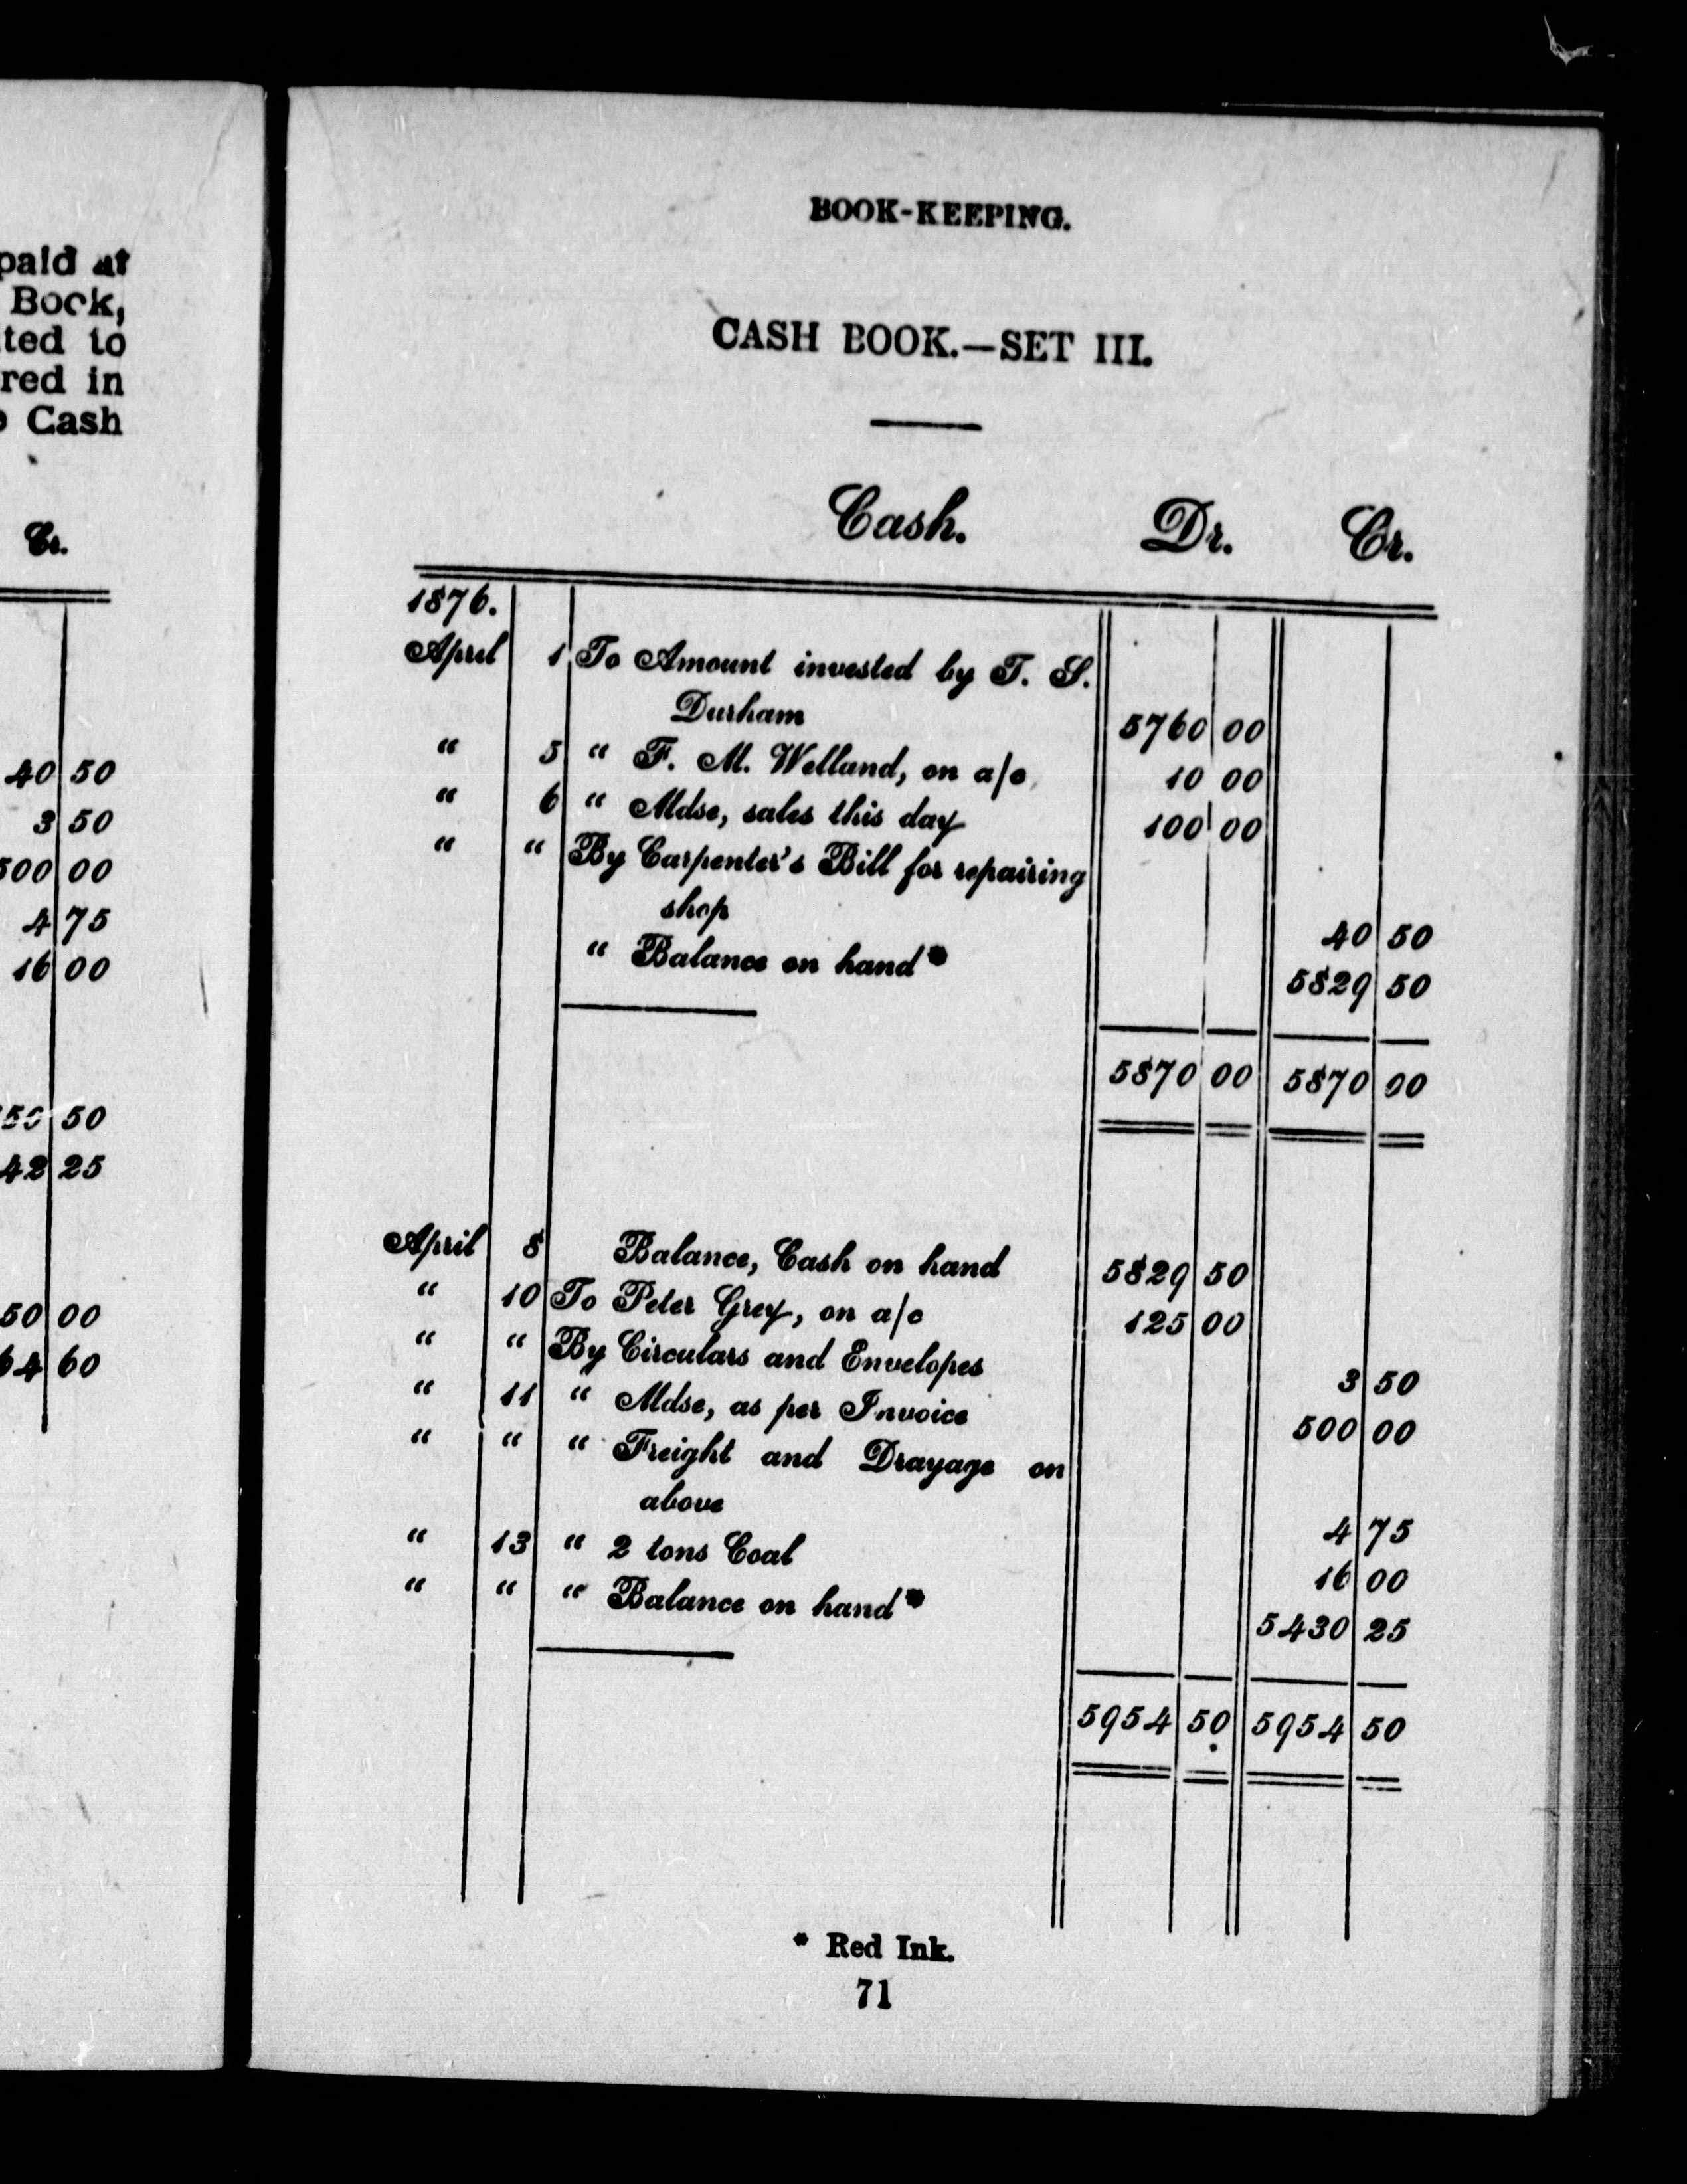 paid at
Book,
ted to
red in
Cash
Cr.
40 50
3 50
500 00
4 75
16 00
50 50
42 25
50 00
64 60
BOOK-KEEPING.
CASH BOOK.—SET III.
Cash. Dr. Cr.
1876.
April 1 To Amount invested by T. S.
Durham 5760 00
" 5 " F. M. Welland, on a/c 10 00
" 6 " Mdse, sales this day 100 00
" " By Carpenter's Bill for repairing
shop 40 50
" Balance on hand* 5829 50
5870 00 5870 00
April 8 Balance, Cash on hand 5829 50
" 10 To Peter Grey, on a/c 125 00
" " By Circulars and Envelopes 3 50
" 11 " Mdse, as per Invoice 500 00
" " " Freight and Drayage on
above 4 75
" 13 " 2 tons Coal 16 00
" " " Balance on hand* 5430 25
5954 50 5954 50
* Red Ink.
71